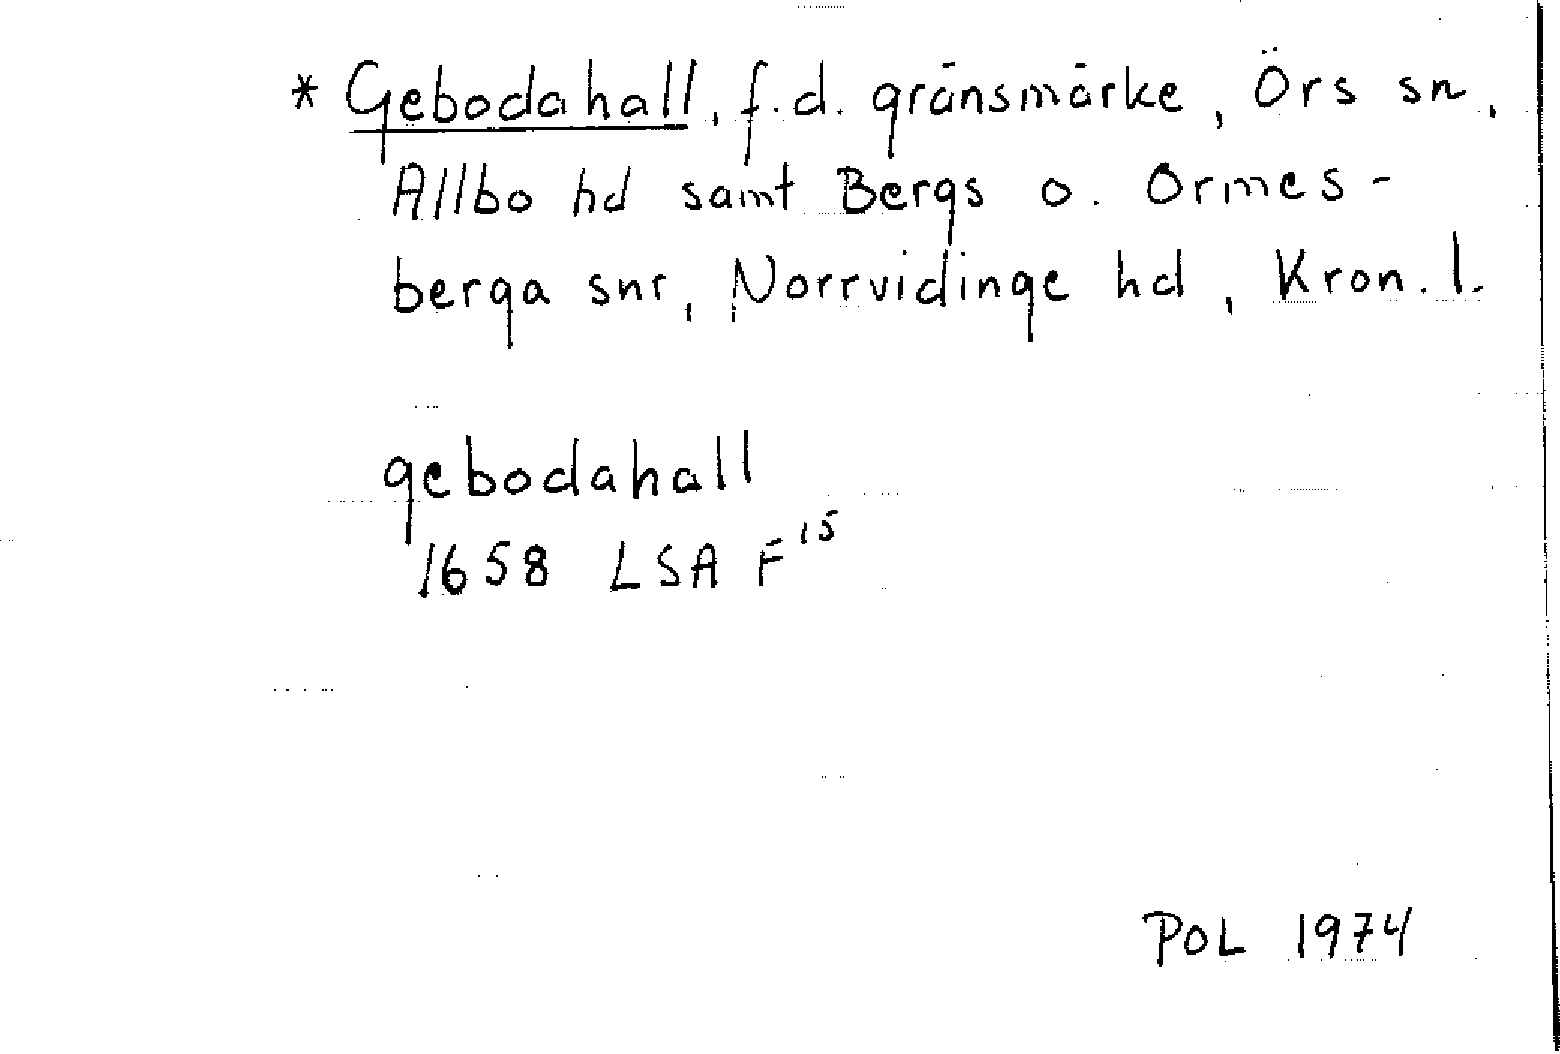 * Gebodahall, f.d. gränsmärke, Örs sn,
Allbo hd samt Bergs o. Ormes-
berga snr, Norrvidinge hd, Kron. l.
gebodahall
1658 LSA F15
POL 1974